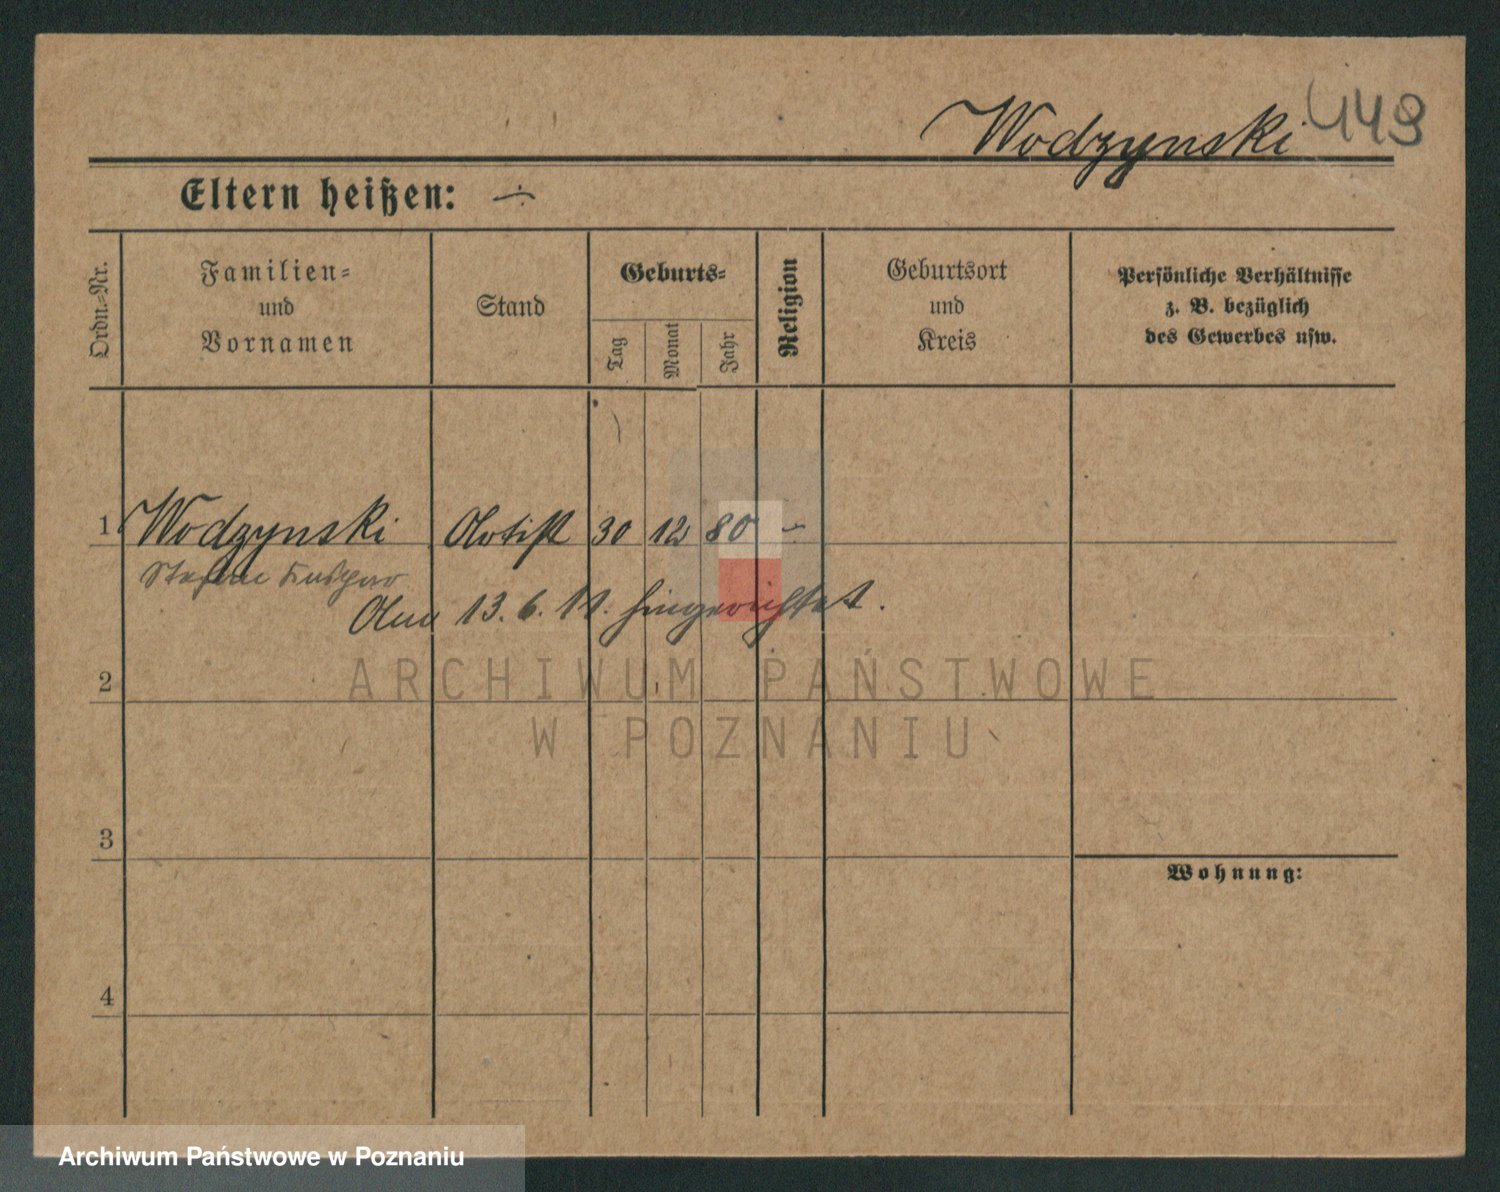 Wodzynski 449
Eltern heißen: ÷
Ordn.-Nr.
Familien-
und
Vornamen
Stand
Geburts-
Tag
Monat
Jahr
Religion
Geburtsort
und
Kreis
Persönliche Verhältnisse
z. B. bezüglich
des Gewerbes usw.
1 Wodzynski Artist 30 12 80 -
Am 13. 6. 11. hingerichtet.
ARCHIWUM PAŃSTWOWE
W POZNANIU
2
3
Wohnung:
4
Archiwum Państwowe w Poznaniu